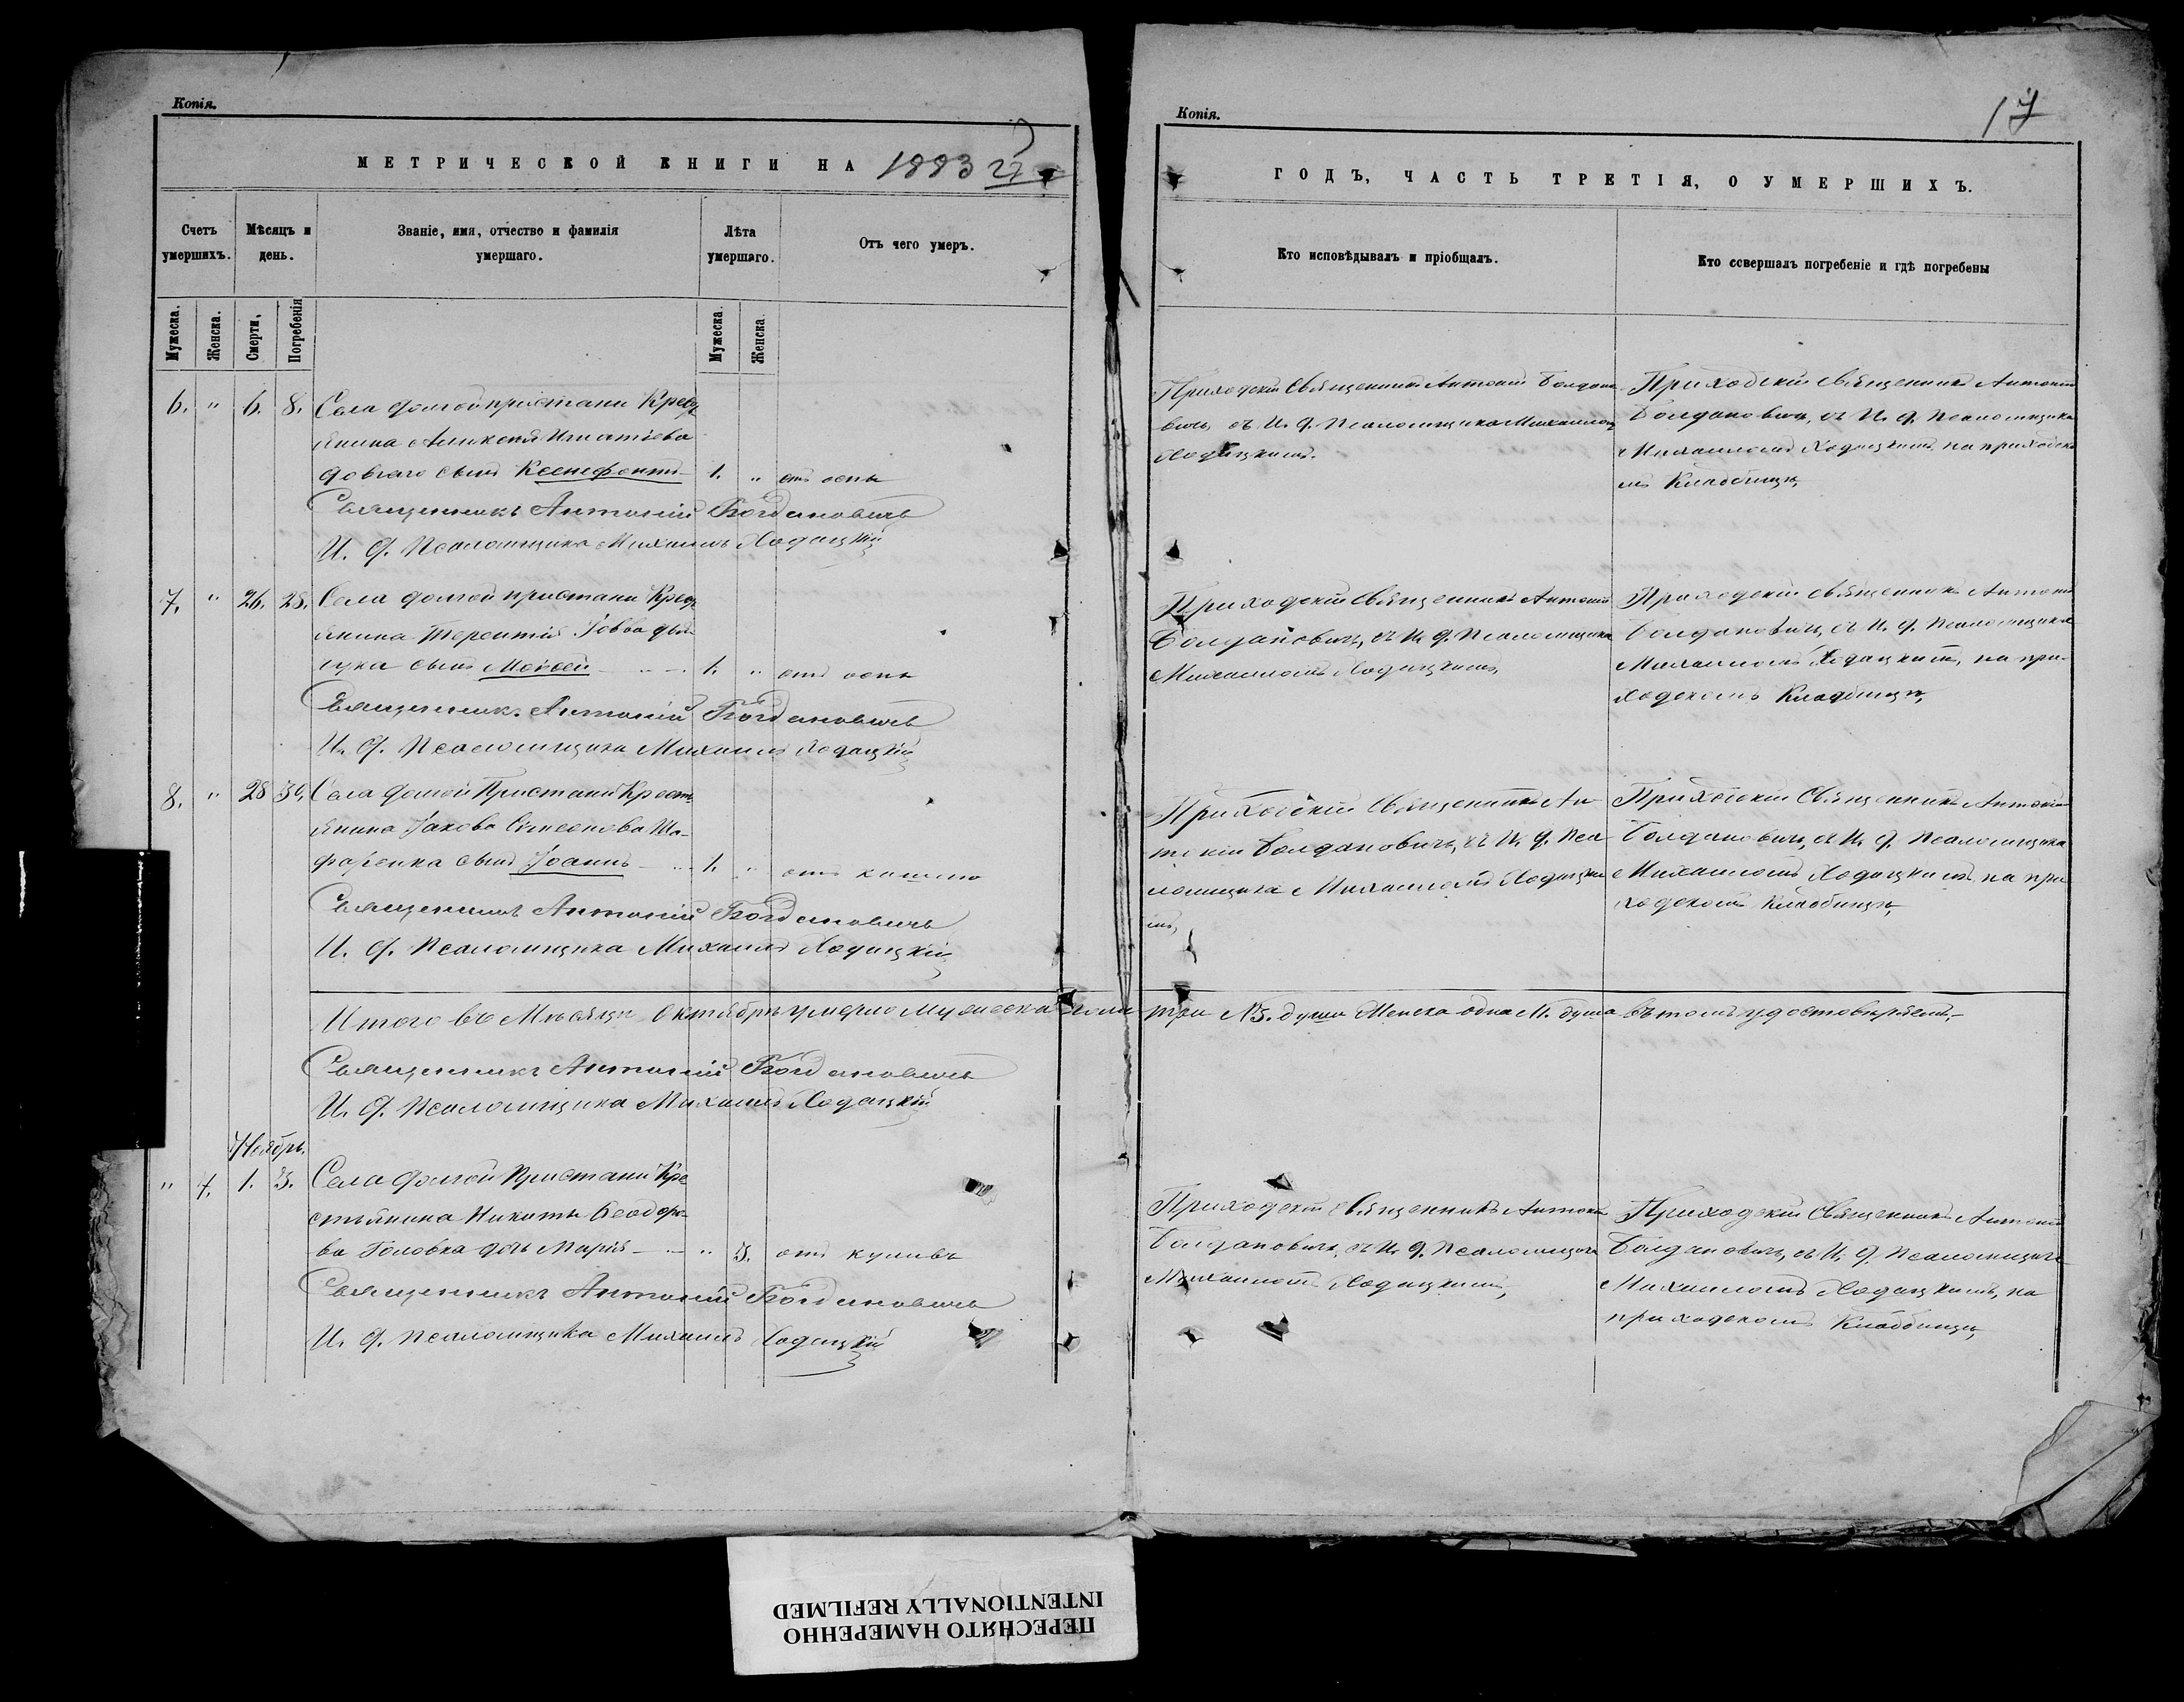 Копія.
МЕТРИЧЕСКОЙ КНИГИ НА 1883
27
Счетъ умершихъ.
Мѣсяцъ и день.
Званіе, имя, отчество и фамилія умершаго.
Лѣта умершаго.
Отъ чего умеръ.
Мужеска.
Женска.
Смерти,
Погребенія
Мужеска.
Женска
6. " 6. 8. Села Долгой пристани Крест
янина Алексія Игнатіева
Довгаго сынъ Ксенофонтъ 1. " отъ оспы
Священникъ Антоній Богдановичъ
И. Д. Псаломщика Михаилъ Ходацкій
7. " 26. 28. Села Долгой пристани Крест
янина Терентія Іовва
сынъ Моисей 1. " отъ оспы
Священник. Антоній Богдановичъ
И. Д. Псаломщика Михаилъ Ходацкій
8. " 28 30. Села Долгой Пристани Крест
янина Іакова Симеонова Ша-
фаренка сынъ Іоаннъ 1. " отъ кашлю
Священникъ Антоній Богдановичъ
И. Д. Псаломщика Михаилъ Ходацкій
Итого въ Мѣсяцѣ Октябрѣ умерло Мужеска пола три №3. души Женска одна №1. душа въ томъ удостовѣряемъ,-
Священникъ Антоній Богдановичъ
И. Д. Псаломщика Михаилъ Ходацкій
Ноябрь.
" 7. 1. 3. Села Долгой Пристани Кре
стьянина Никиты Ѳеодоро-
ва Головка дочь Марія " 3. отъ
Священникъ Антоній Богдановичъ
И. Д. Псаломщика Михаилъ Ходацкій
Копія.
17
ГОДЪ, ЧАСТЬ ТРЕТІЯ, О УМЕРШИХЪ.
Кто исповѣдывалъ и пріобщалъ.
Кто совершалъ погребеніе и гдѣ погребены
Приходскій Священникъ Антоній Богдано
вичъ, съ И. Д. Псаломщика Михаиломъ
Ходацкимъ.
Приходскій Священникъ Антоній
Богдановичъ, съ И. Д. Псаломщика
Михаиломъ Ходацкимъ, на приходско
мъ Кладбищѣ,
Приходскій Священникъ Антоній
Богдановичъ, съ И. Д. Псаломщика
Михаиломъ Ходацкимъ,
Приходскій Священникъ Антоній
Богдановичъ, съ И. Д. Псаломщика
Михаиломъ Ходацкимъ, на при-
ходскомъ Кладбищѣ,
Приходскій Священникъ Ан
тоній Богдановичъ, съ И. Д. Пса
ломщика Михаиломъ Ходацки
мъ,
Приходскій Священникъ Антоній
Богдановичъ, съ И. Д. Псаломщика
Михаиломъ Ходацкимъ, на при
ходскомъ Кладбищѣ,
Приходскій Священникъ Антоній
Богдановичъ, съ И. Д. Псаломщика
Михаиломъ Ходацкимъ,
Приходскій Священникъ Антоній
Богдановичъ, съ И. Д. Псаломщика
Михаиломъ Ходацкимъ, на
приходскомъ Кладбищѣ,
ПЕРЕСНЯТО НАМЕРЕННО
INTENTIONALLY REFILMED